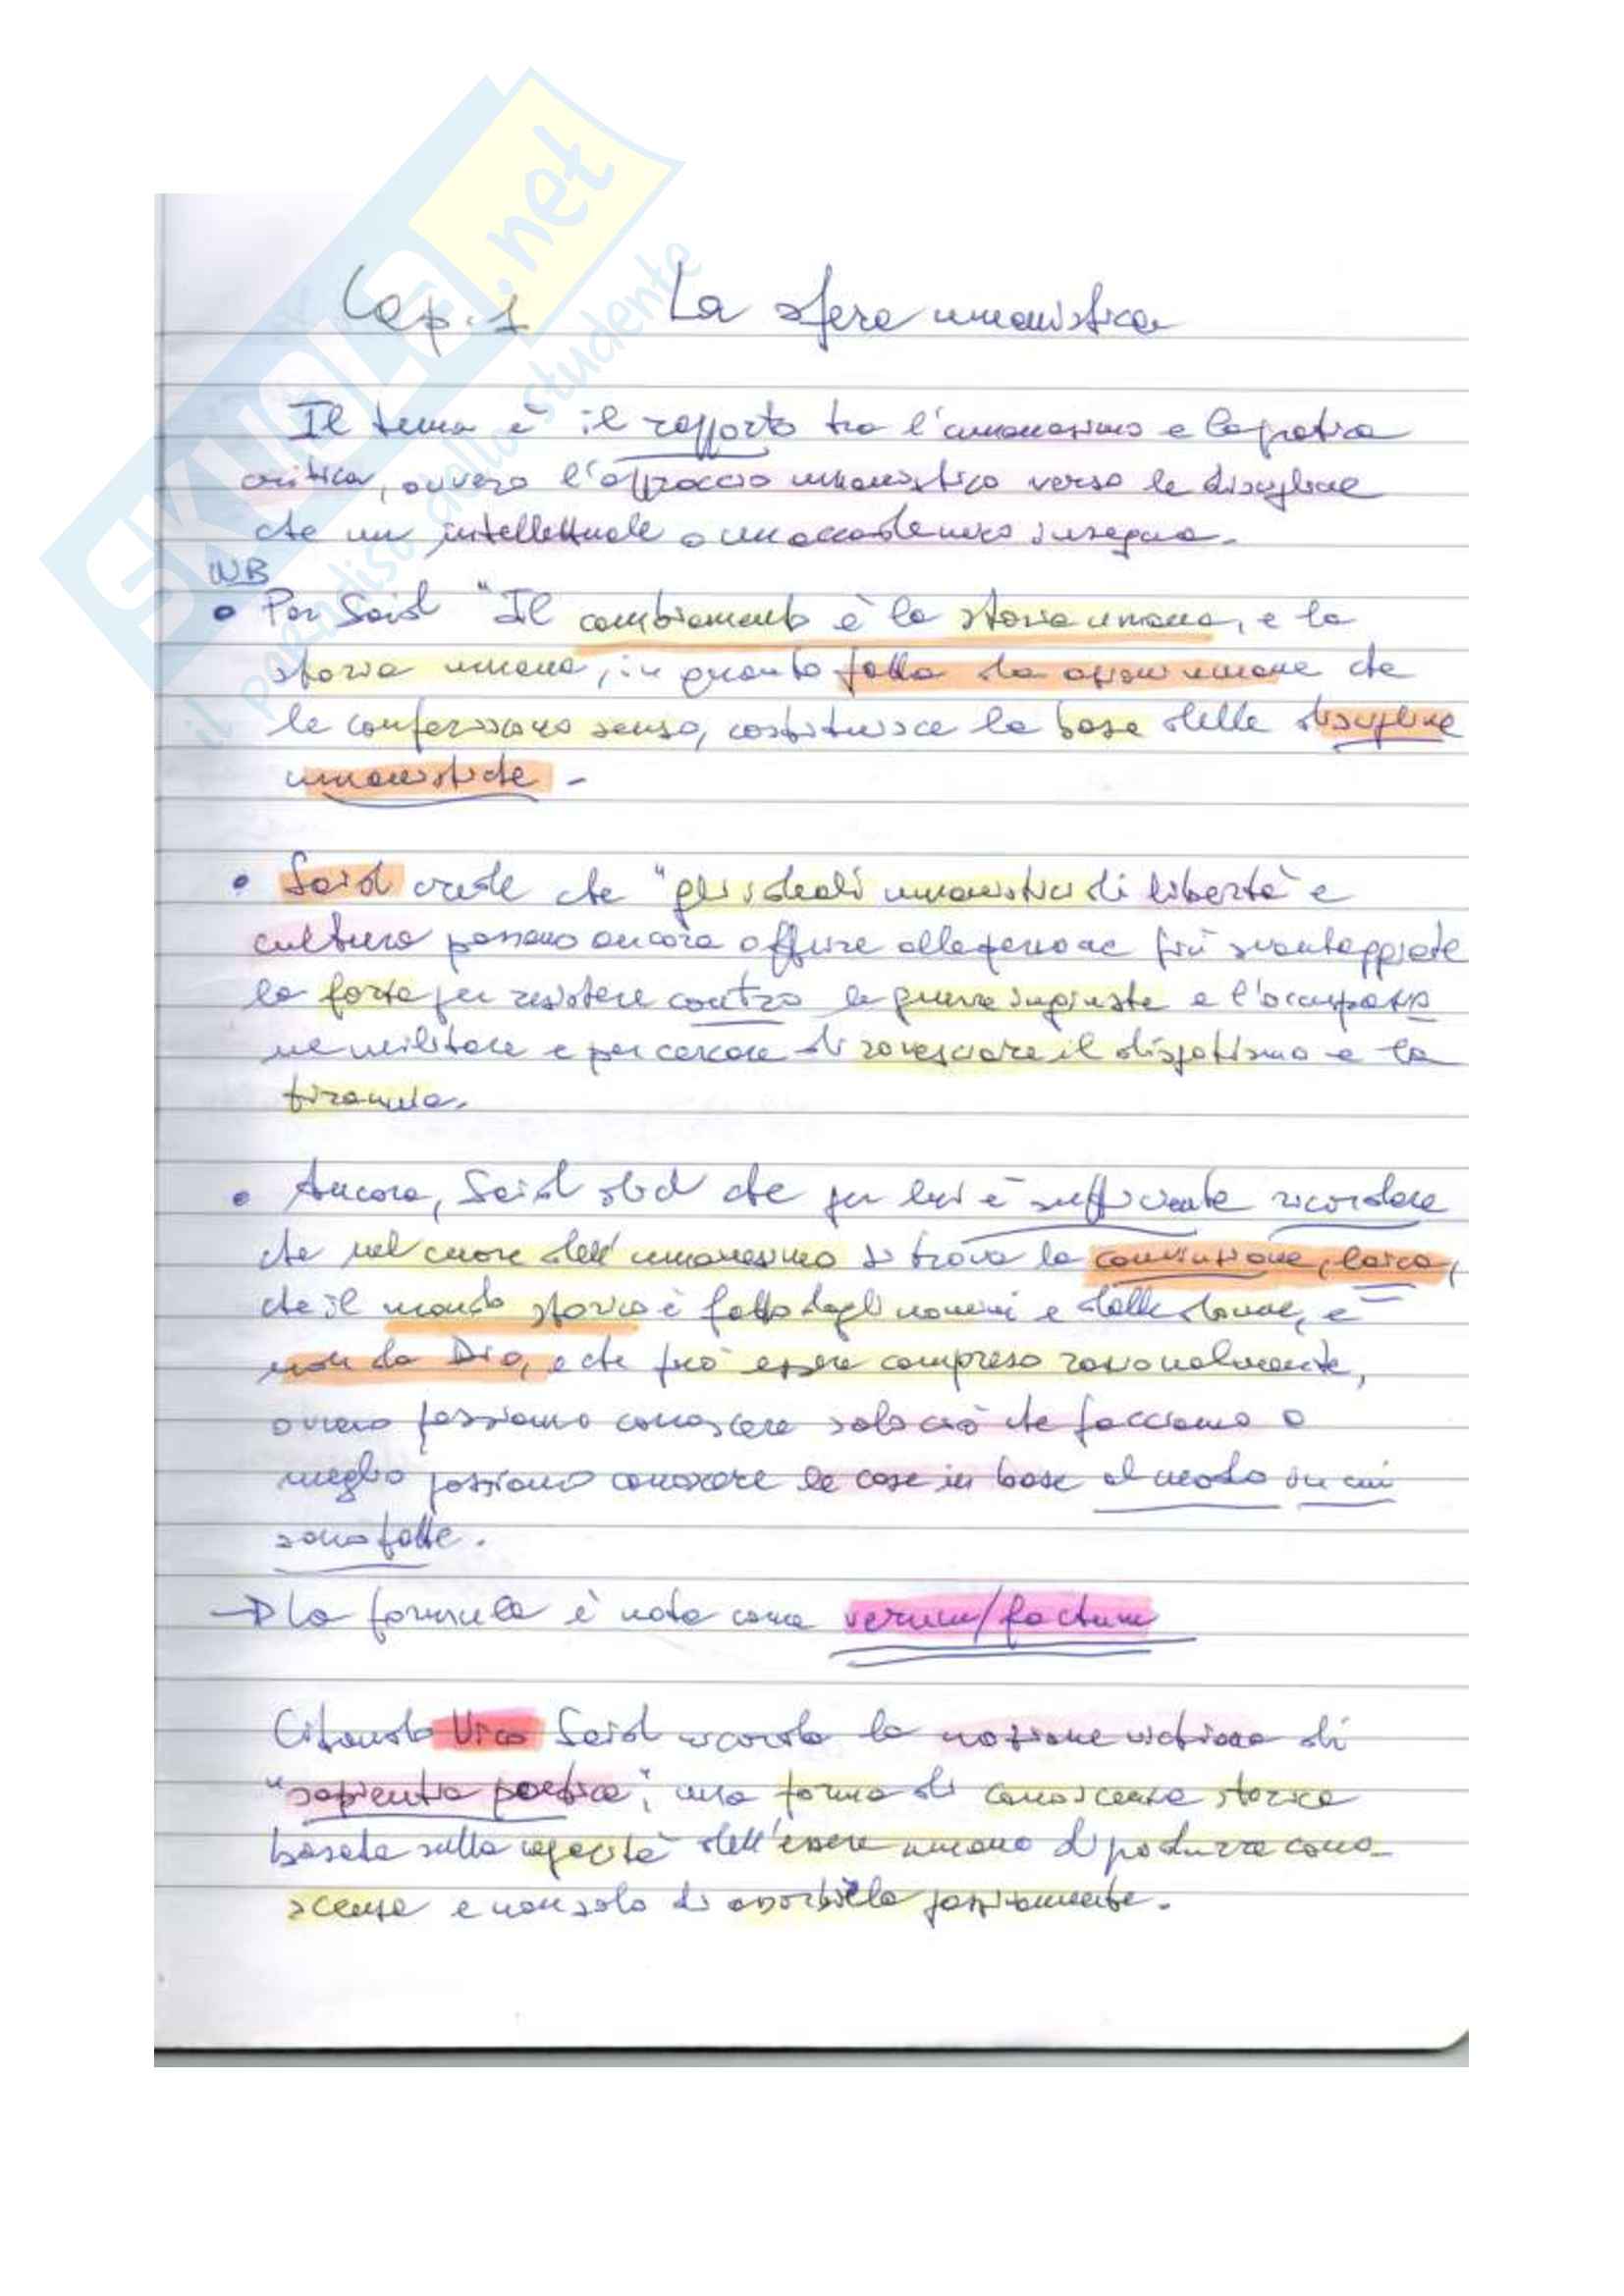 SKUOLA.net
il paradiso dello studente
Cap. 1 La sfera umanistica
Il tema è il rapporto tra l'umanesimo e la pratica
critica, ovvero l'approccio umanistico verso le discipline
che un intellettuale o un accademico insegna.
NB
• Per Said "Il cambiamento è la storia umana, e la
storia umana, in quanto fatta da azioni umane che
le conferiscono senso, costituisce la base delle discipline
umanistiche -
• Said crede che "gli ideali umanistici di libertà e
cultura possano ancora offrire alle persone più svantaggiate
la forza per resistere contro le guerre ingiuste e l'occupazio
ne militare e per cercare di rovesciare il dispotismo e la
tirannia.
• Ancora, Said che per lui è sufficiente ricordare
che nel cuore dell'umanesimo si trova la convinzione, laica,
che il mondo storico è fatto dagli uomini e dalle donne, e
non da Dio, e che può essere compreso razionalmente,
ovvero possiamo conoscere solo ciò che facciamo o
meglio possiamo conoscere le cose in base al modo in cui
sono fatte.
→ La formula è nota come verum/factum
Citando Vico Said ricorda la nozione vichiana di
"sapientia poetica", una forma di conoscenza storica
basata sulla capacità dell'essere umano di produrre cono-
scenza e non solo di assorbirla passivamente.